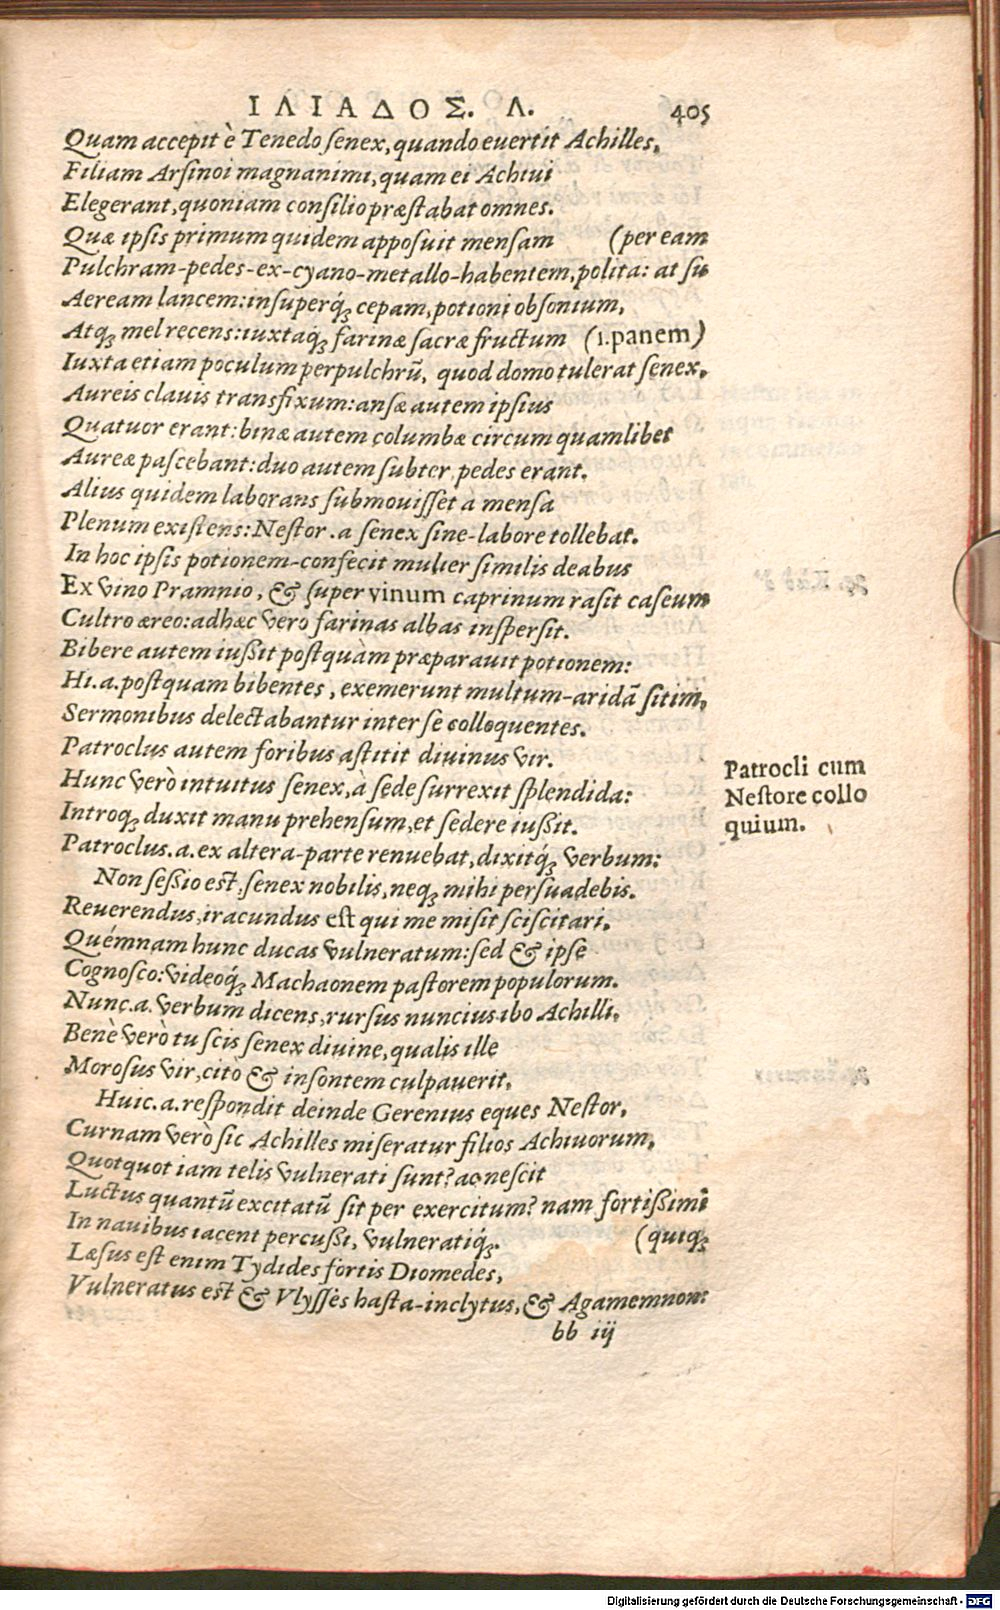 ΙΛΙΑΔΟΣ. Λ. 405
Quam accepit è Tenedo senex, quando euertit Achilles,
Filiam Arsinoi magnanimi, quam ei Achiui
Elegerant, quoniam consilio præstabat omnes.
Quæ ipsis primum quidem apposuit mensam (per eam
Pulchram-pedes-ex-cyano-metallo-habentem, polita: at su
Aeream lancem: insuperq́ꝫ cepam, potioni obsonium,
Atqꝫ mel recens: iuxtaq́ꝫ farinæ sacræ fructum (1. panem)
Iuxta etiam poculum perpulchrũ, quod domo tulerat senex,
Aureis clauis transfixum: ansæ autem ipsius
Quatuor erant: binæ autem columbæ circum quamlibet
Aureæ pascebant: duo autem subter pedes erant.
Alius quidem laborans submouisset a mensa
Plenum existens: Nestor .a senex sine-labore tollebat.
In hoc ipsis potionem-confecit mulier similis deabus
Ex vino Pramnio, & super vinum caprinum rasit caseum
Cultro æreo: ad hæc vero farinas albas inspersit.
Bibere autem iußit postquàm præparauit potionem:
Hi .a. postquam bibentes, exemerunt multum-aridã sitim,
Sermonibus delectabantur inter se colloquentes.
Patroclus autem foribus astitit diuinus vir.
Hunc verò intuitus senex, à sede surrexit splendida:
Introqꝫ duxit manu prehensum, et sedere iußit.
Patroclus .a. ex altera-parte renuebat, dixitq́ꝫ verbum:
Non sessio est, senex nobilis, neqꝫ mihi persuadebis.
Reuerendus, iracundus est qui me misit sciscitari,
Quémnam hunc ducas vulneratum: sed & ipse
Cognosco: videoq́ꝫ Machaonem pastorem populorum.
Nunc .a. verbum dicens, rursus nuncius ibo Achilli,
Benè verò tu scis senex diuine, qualis ille
Morosus vir, citò & insontem culpauerit.
Huic .a. respondit deinde Gerenius eques Nestor,
Curnam verò sic Achilles miseratur filios Achiuorum,
Quotquot iam telis vulnerati sunt? ac nescit
Luctus quantũ excitatũ sit per exercitum? nam fortißimi
In nauibus iacent percußi, vulneratiq́ꝫ. (quiqꝫ
Læsus est enim Tydides fortis Diomedes,
Vulneratus est & Vlysses hasta-inclytus, & Agamemnon:
bb iij
Patrocli cum
Nestore collo
quium.
Digitalisierung gefördert durch die Deutsche Forschungsgemeinschaft - DFG